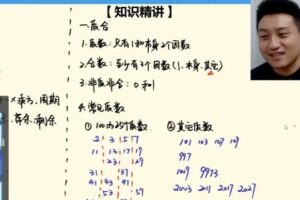 【知识精讲】
一.质合
1.质数:只有1和本身2个因数
2.合数:至少有3个因数(1,本身,其它)
3.非质非合:0和1
4.常见质数
①100内25个质数
②其它质数
2 3 5 7
11 13 17 19
23 29
31 37
41 43 47
53 59
101 103 107 109
997
1009 9973
2003 2011 2017 2027